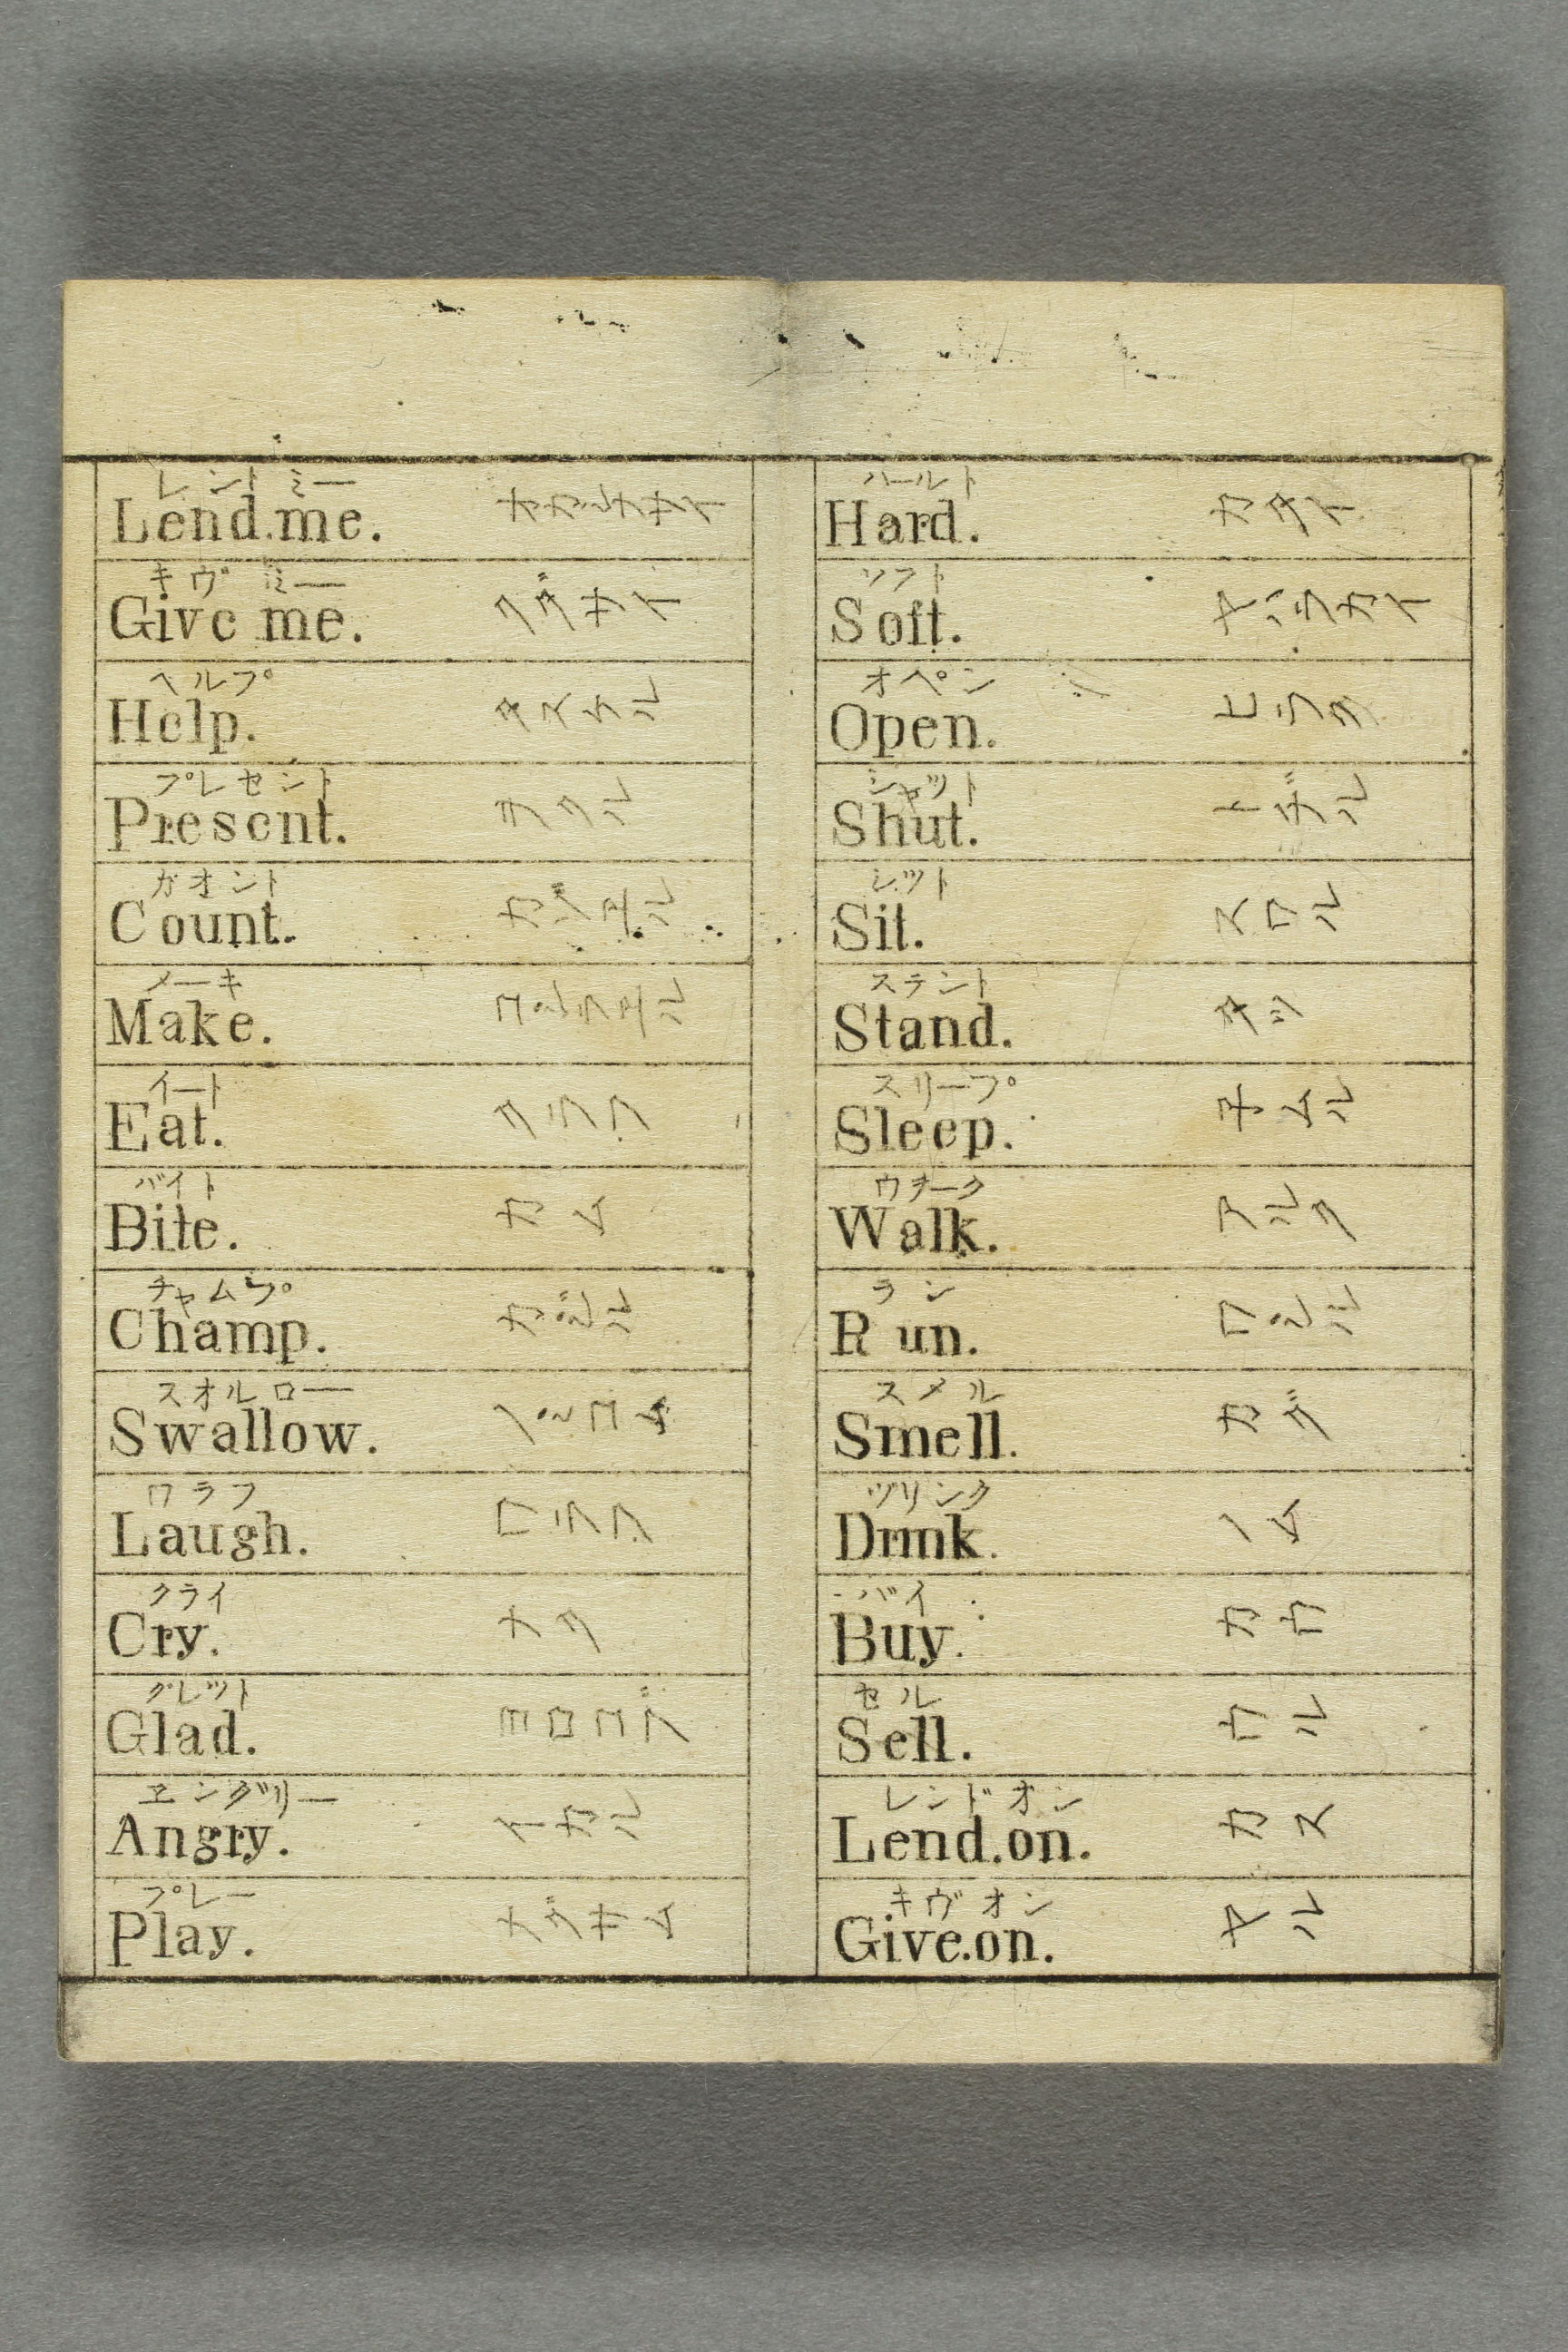 レントミー
Lend.me. オカシナサイ
キヴ゚ミー
Give me. クダサイ
ヘルプ
Help. タスケル
プレセント
Present.
カオント
Count. カゾヱル
メーキ
Make. コシラヱル
イート
Eat. クラフ
バイト
Bite. カム
チャムプ
Champ. カジル
スオルロー
Swallow.
ワラフ
Laugh. ワラフ
クライ
Cry. ナク
グレツト
Glad. ヨロコブ
ヱングリー
Angry. イカル
プレー
Play. ナグサム
ハールト
Hard. カタイ
ソフト
Soft. ヤハラカイ
オペン
Open. ヒラク
シャツト
Shut. トヂル
シツト
Sit. スワル
ステント
Stand. タツ
スリープ
Sleep.子ムル
ウヲーク
Walk. アルク
ラン
Run. ワシル
スメル
Smell. カグ
ヅリンク
Drink. ノム
バイ
Buy. カウ
セル
Sell. ウル
レンドオン
Lend.on. カス
キヴオン
Give.on. ヤル